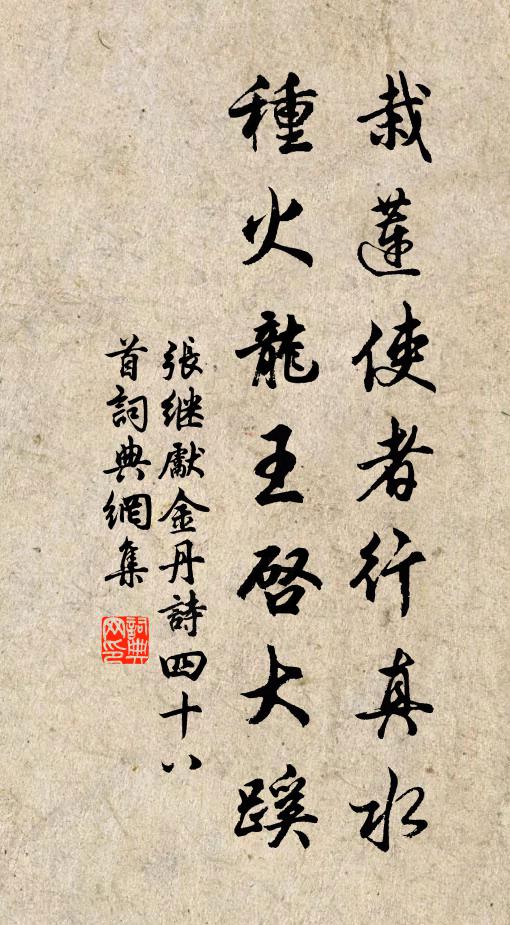 栽蓮使者行真水
種火龍王啓大蹊
張继獻金丹詩四十八
首詞典網集
詞典
网印